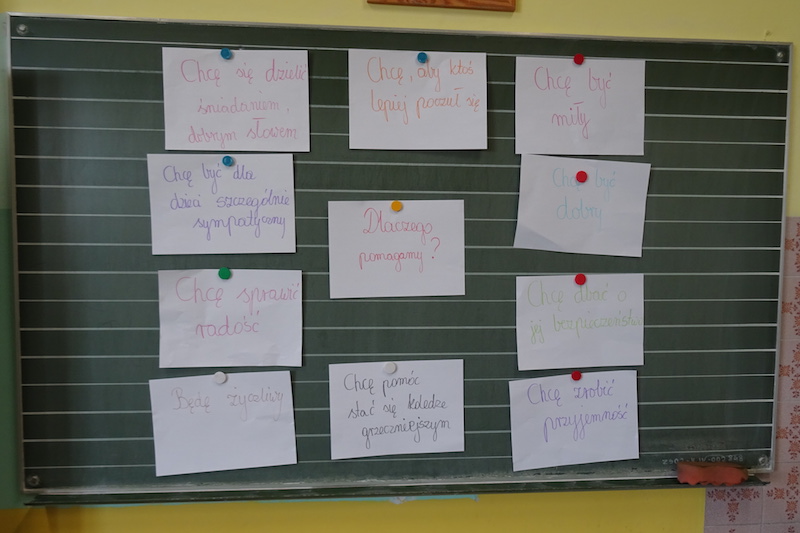 Chcę się dzielić
śniadaniem,
dobrym słowem
Chcę, aby ktoś
lepiej poczuł się
Chcę być
miły
Chcę być dla
dzieci szczególnie
sympatyczny
Dlaczego
pomagamy?
Chcę być
dobry
Chcę sprawić
radość
Chcę dbać o
jej bezpieczeństwo
Będę życzliwy
Chcę pomóc
stać się koledze
grzeczniejszym
Chcę zrobić
przyjemność